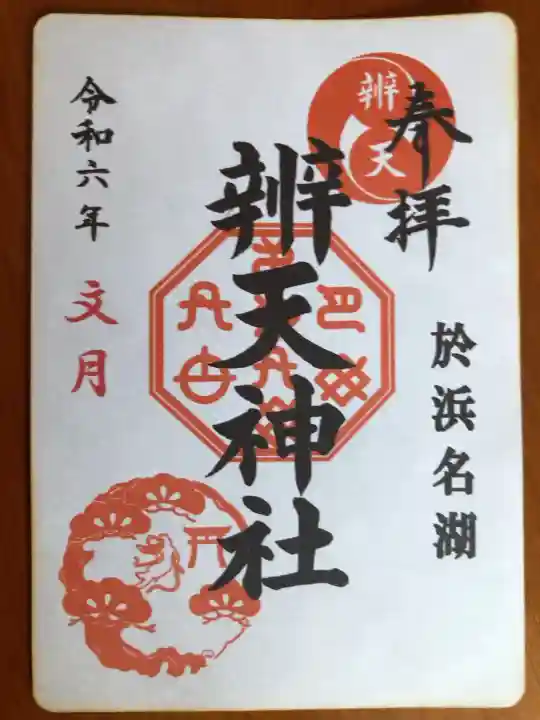 奉拝
於浜名湖
辨天
辨天神社
令和六年
文月